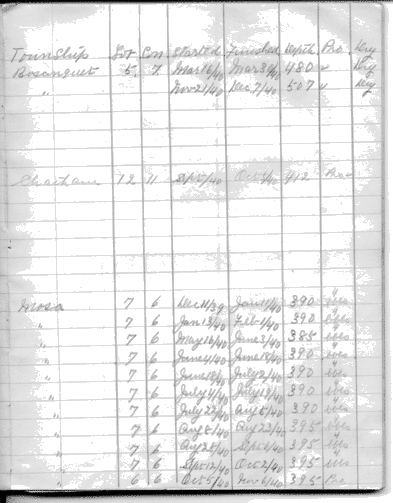 Township Lot Con Started Finished Depth Pro Dry
Bosanquet 5 7 Mar 16/40 Mar 30/40 480 " Dry
" Nov 21/40 Dec 7/40 507 " Dry
Chatham 12 11 Sep 5/40 Oct 5/40 412
Mosa 7 6 Dec 11/39 Jan 11/40 390
" 7 6 Jan 13/40 Feb 1/40 390
" 7 6 May 16/40 June 3/40 385
" 7 6 June 4/40 June 18/40 390
" 7 6 June 18/40 July 2/40 390
" 7 6 July 4/40 July 19/40 390
" 7 6 July 22/40 Aug 5/40 390
" 7 6 Aug 8/40 Aug 22/40 395
" 7 6 Aug 28/40 Sep 395
" 7 6 Sep 12/40 Oct 2/40 395
" 6 6 Oct 5/40 Nov 6/40 395